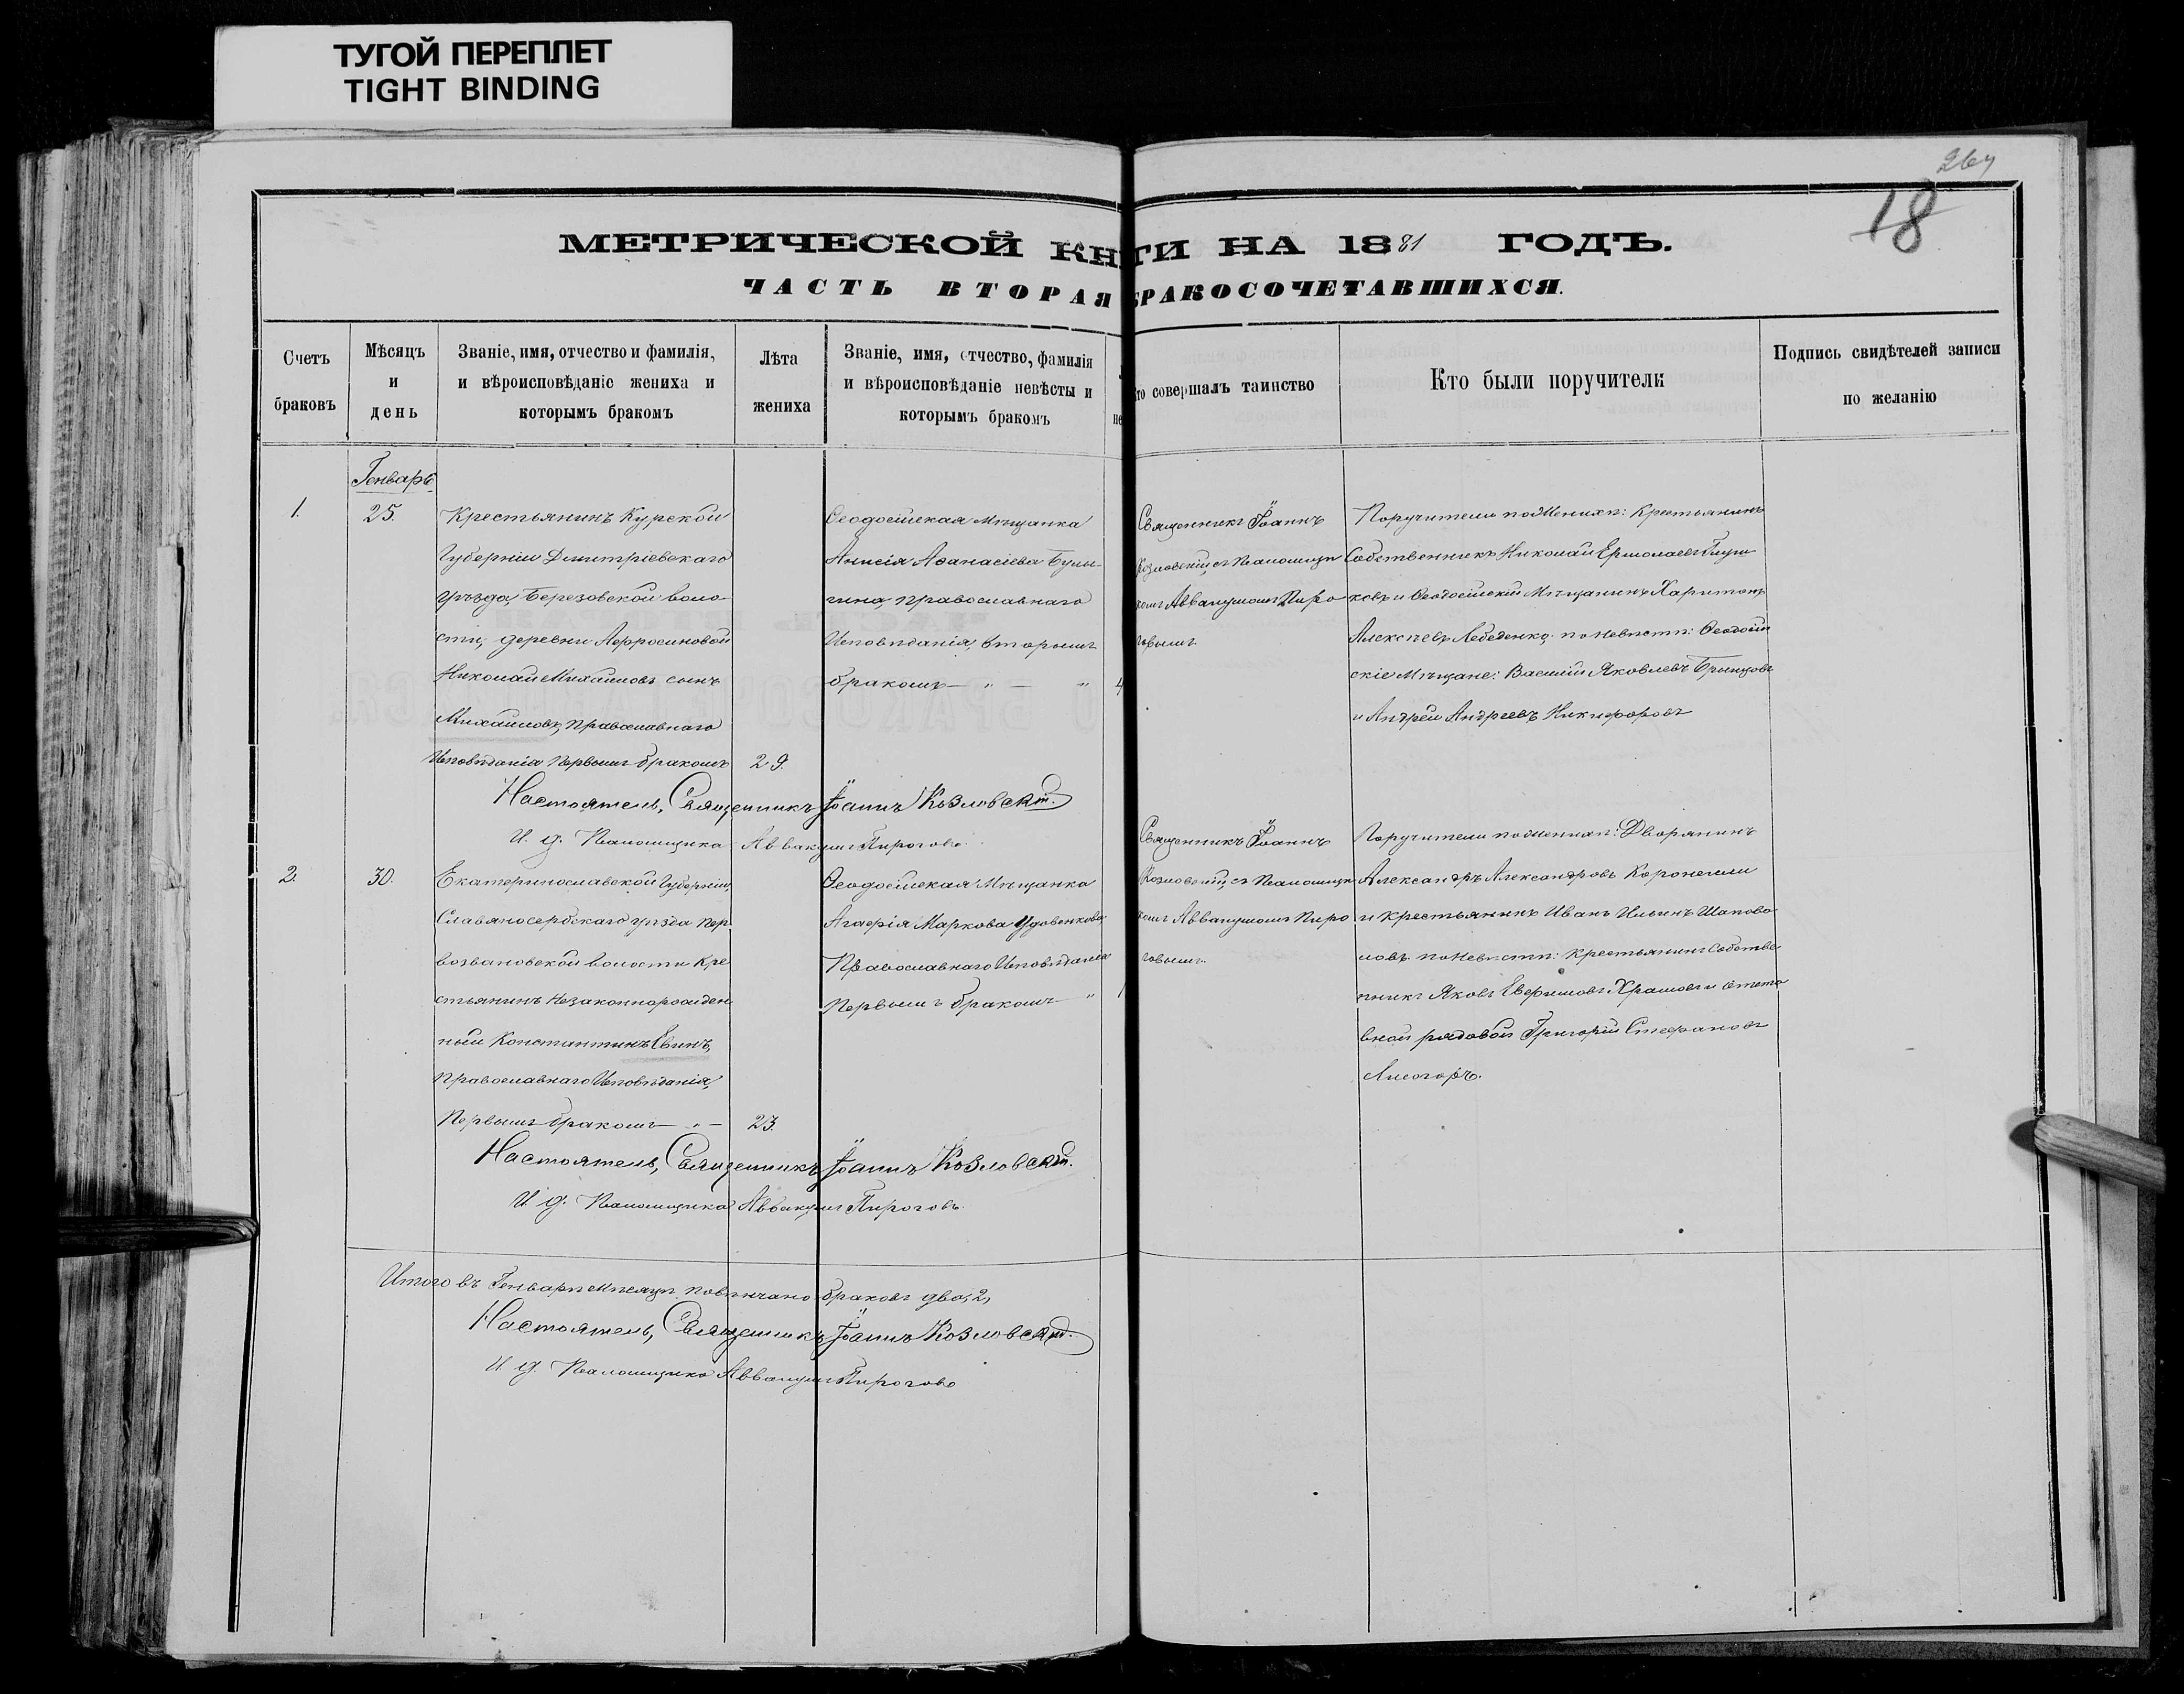 ТУГОЙ ПЕРЕПЛЕТ
TIGHT BINDING
267
18
МЕТРИЧЕСКОЙ КНИГИ НА 1881 ГОДЪ.
ЧАСТЬ ВТОРАЯ БРАКОСОЧЕТАВШИХСЯ.
Счетъ
браковъ
Мѣсяцъ
и
день
Званіе, имя, отчество и фамилія,
и вѣроисповѣданіе жениха и
которымъ бракомъ
Лѣта
жениха
Званіе, имя, отчество, фамилія
и вѣроисповѣданіе невѣсты и
которымъ бракомъ
Кто совершалъ таинство
Кто были поручители
Подпись свидѣтелей записи
по желанію
Генварь
1.
25.
Крестьянинъ Курской
Губерніи Дмитріевскаго
уѣзда, Березовской воло-
сти, деревни Афросимовой
Николай Михаиловъ сынъ
Михаиловъ, православнаго
Исповѣданія первымъ бракомъ
29.
Ѳеодосійская Мѣщанка
Анисія Аѳанасіева Булы-
гина, православнаго
Исповѣданія, вторымъ
бракомъ — " — "
Священникъ Іоаннъ
Козловскій, съ Псаломщи
комъ Аввакумомъ Пиро
говымъ
Поручители по Женихѣ: Крестьянинъ
Собственникъ Николай Ермолаевъ Глуш
ковъ и Ѳеодосійскій Мѣщанинъ Харитонъ
Алексѣевъ Лебеденко. по Невѣстѣ: Ѳеодосій
скіе Мѣщане: Василій Яковлевъ Брынцовъ
и Андрей Андреевъ Никифоровъ
Настоятель, Священникъ Іоаннъ Козловскій.
И. д. Псаломщика Аввакумъ Пироговъ.
2.
30.
Екатеринославской Губерніи,
Славяносербскаго уѣзда Пер
возвановской волости Кре
стьянинъ Незаконнорожден
ный Константинъ Евинъ,
Православнаго Исповѣданія,
Первымъ бракомъ — " —
23.
Ѳеодосійская Мѣщанка
Агафія Маркова Удовенкова,
Православнаго Исповѣданія
Первымъ бракомъ — "
Священникъ Іоаннъ
Козловскій, съ Псаломщи
комъ Аввакумомъ Пиро
говымъ.
Поручители по Женихѣ: Дворянинъ
Александръ Александровъ Коронелли
и Крестьянинъ Иванъ Ильинъ Шапова
ловъ. по Невѣстѣ: Крестьянинъ Собстве
нникъ Яковъ Евфимовъ Храмовъ и отста
вной рядовой Григорій Стефановъ
Лисогоръ.
Настоятель, Священникъ Іоаннъ Козловскій.
И. д. Псаломщика Аввакумъ Пироговъ.
Итого въ Генварѣ Мѣсяцѣ повѣнчано браковъ два, 2,
Настоятель, Священникъ Іоаннъ Козловскій.
И. д. Псаломщика Аввакумъ Пироговъ